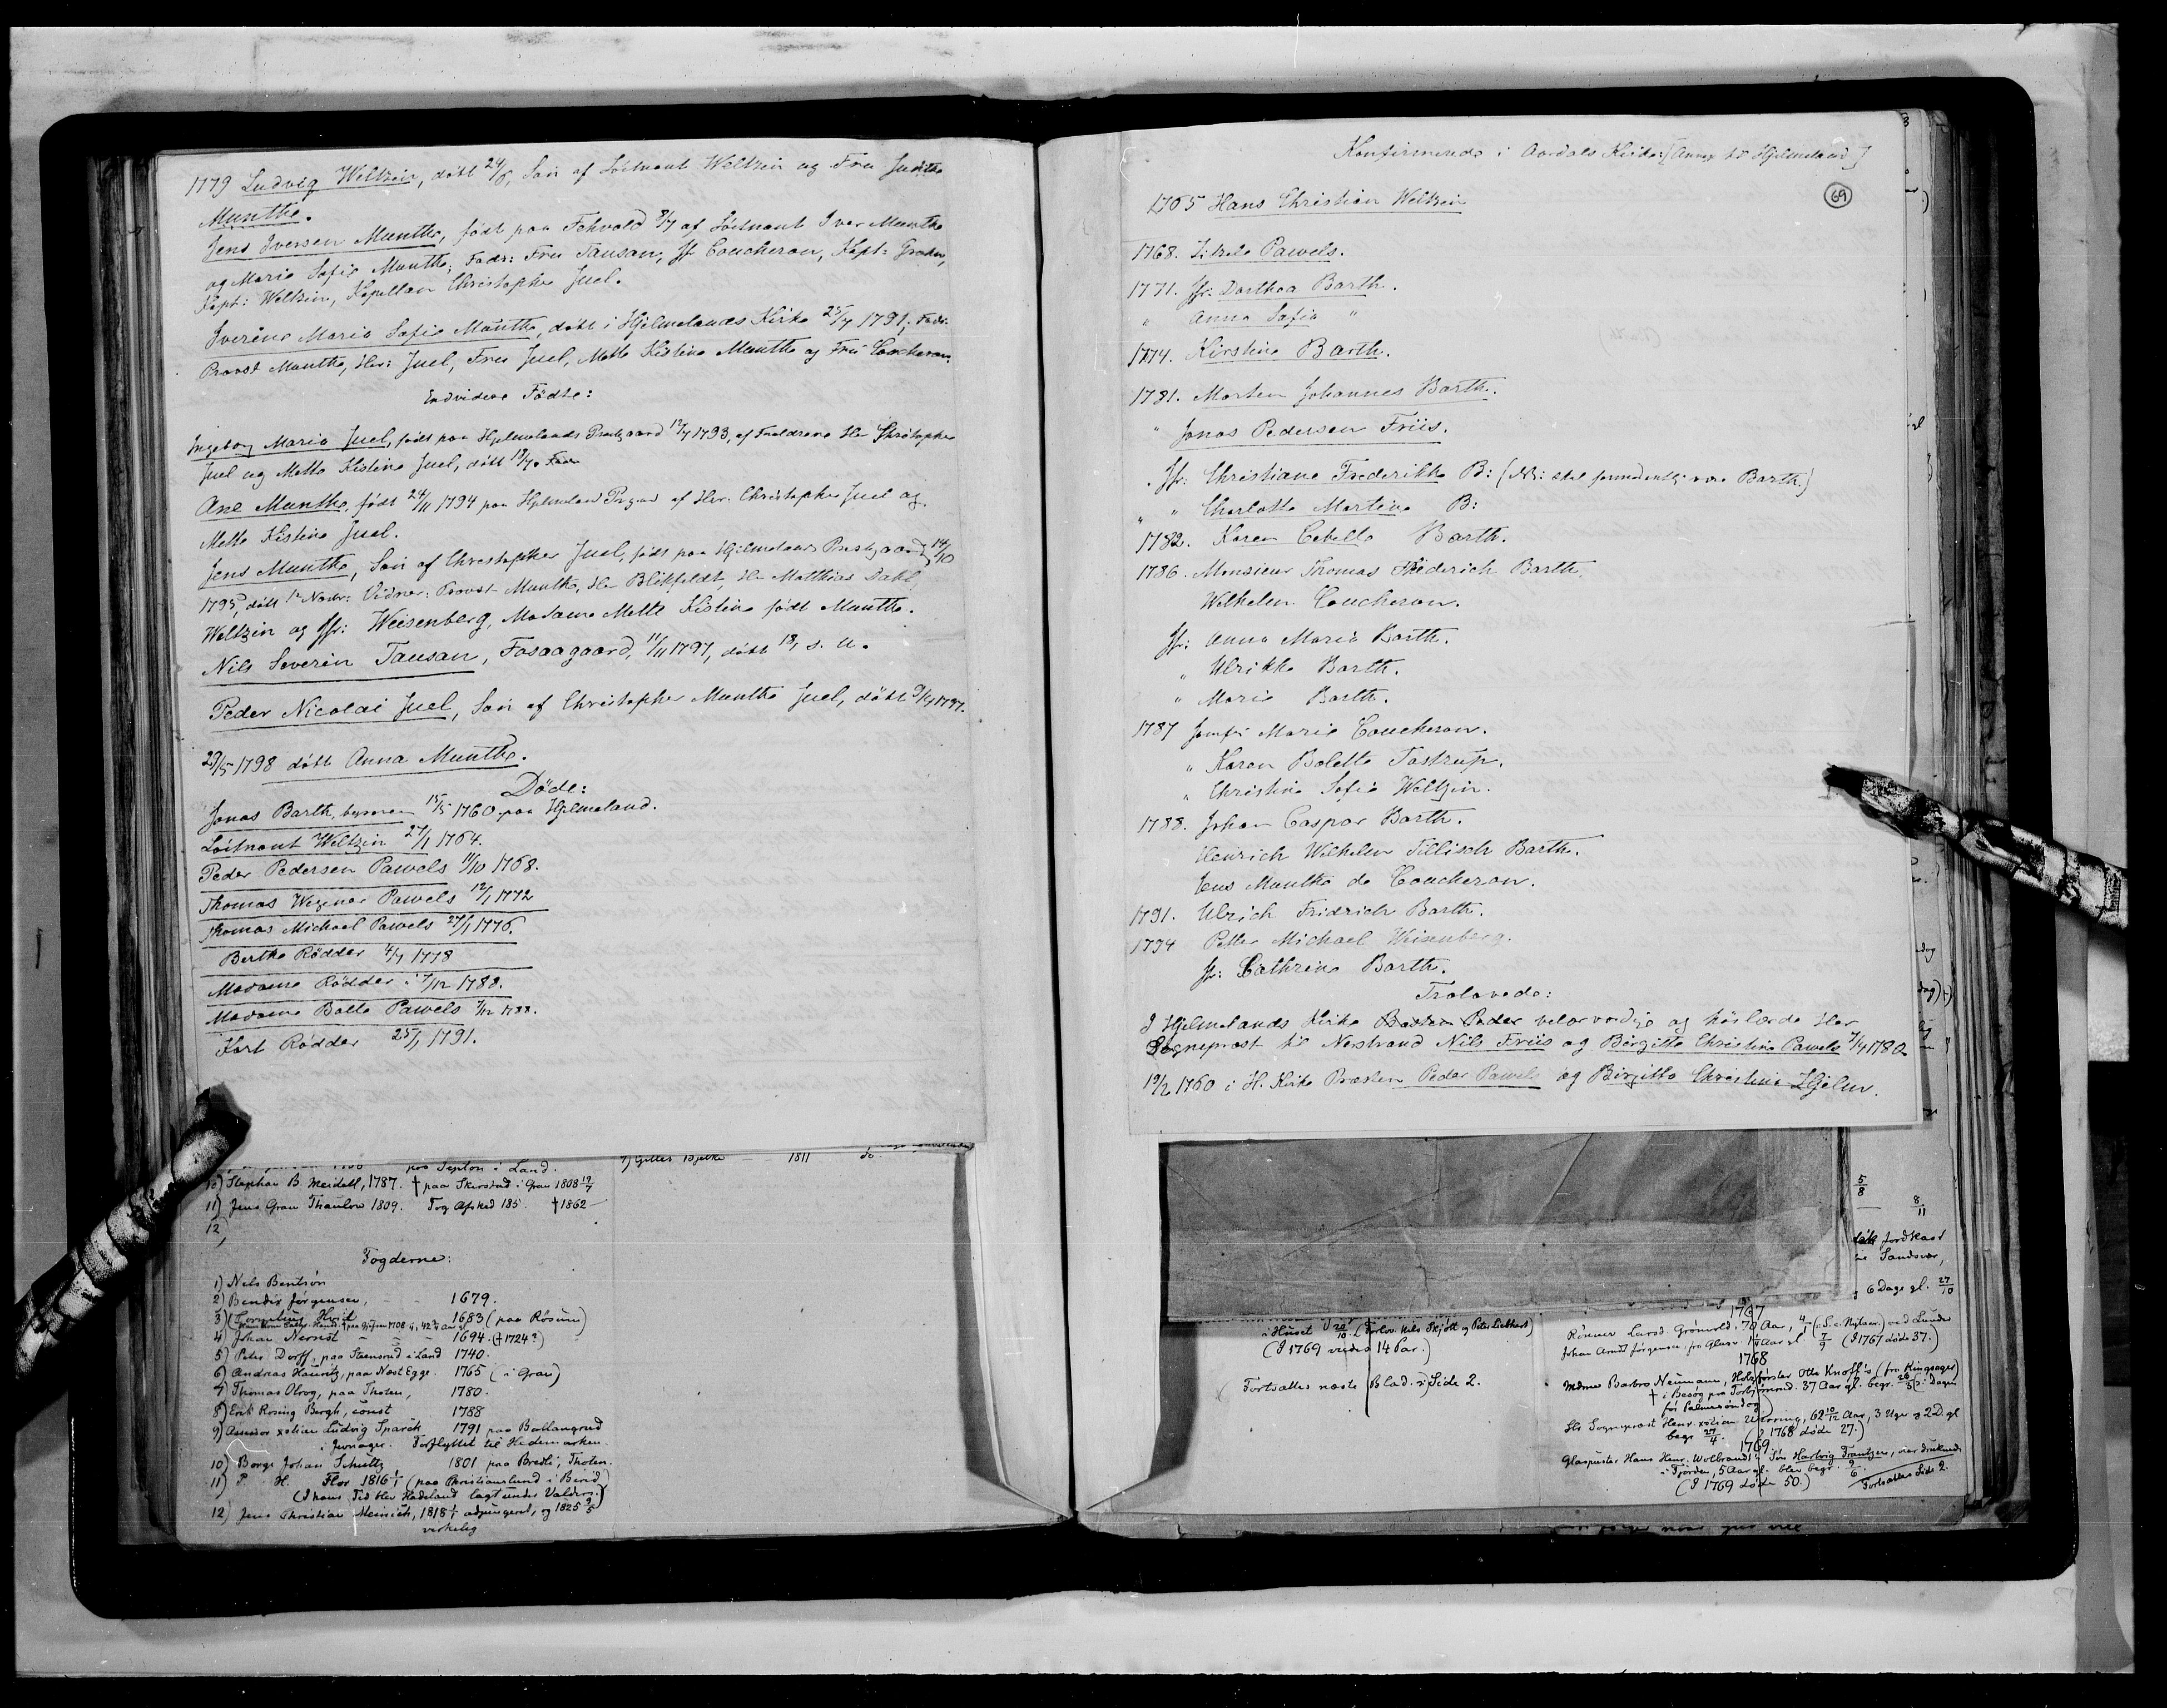 1779 Ludvig Weltzin, døbt 24/8, Søn af Löitnant Weltzin og Fru Judithe
Munthe.
Jens Iversen Munthe, født paa 8/7 af Löitnant Iver Munthe
og Marie Sofie Munthe; Fadr: Fru Tausan, Jfr Coucheron, Kapt:
Kapt: Weltzin, Kapellan Christopher Juel.
Iverine Marie Sofie Munthe, døbt i Hjelmelands Kirke 25/7 1791; Fadr:
Provst Munthe, Her: Juel, Fru Juel, Mette Kistine Munthe og Fru Coucheron.
Endvidere Födte:
Ingeborg Marie Juel, født paa Hjelmelands Præstgaard 12/7 1793, af Forældrene Hr Christopher
Juel og Mette Kistine Juel, døbt 18/7.
Ane Munthe, født 24/11 1794 paa Hjelmeland Prgaard af Her. Christopher Juel og
Mette Kistine Juel.
Jens Munthe, Søn af Christopher Juel, født paa Hjelmelands Præstgaard, 14/10
1795, døbt 1ste Novbr: Vidner: Provst Munthe, Hr Blikfeldt, Hr Matthias Dahl,
Weltzin og Jfr: Weisenberg, Madame Mette Kistine født Munthe.
Nils Severin Tausan, Fosaagaard, 11/11 1797, døbt 18, s. M.
Peder Nicolai Juel, Søn af Christopher Munthe Juel, døbt 9/4 1797.
29/5 1798 døbt Anna Munthe.
Döde:
Jonas Barth, 15/5 1760 paa Hjelmeland.
Löitnant Weltzin 27/1 1764.
Peder Pedersen Pawels 11/10 1768.
Thomas Wegener Pawels 12/1 1772
Thomas Michael Pawels 27/1 1776.
Berthe Rödder 4/7 1778
Madame Rödder 7/12 1788.
Madame Bolle Pawels 7/12 1788.
Kort Rödder 25/1 1791.
paa Septon i Land.
7) Gilles Bjelke 1811 do.
10) Stephan B. Meidell, 1787. † paa Skirstad i Gran 1808 19/7
11) Jens Gran Thaulow 1809. Tog Afsked 185 . † 1862
12)
Fogderne:
1) Nils Bentsön
2) Bender Jørgensen, 1679.
3) 1683 (paa Røsum)
4) Johan Nernst 1694. († 1724?)
5) Peter Dorff, paa Steensrud i Land 1740.
6) Andreas Hauritz, paa Næst Egge. 1765 (i Gran)
7) Thomas Olrog, paa Thoten, 1780.
8) Erik Rosing Bergh, const 1788
9) Assessor xstian Ludvig Sparch 1791 paa Bollangrud
i Jevnager. Forflyttet til Hedemarken.
10) Børge Johan Schultz 1801 paa Bredli, Thoten.
11) P. H. Flor 1816 1/1 (paa Christianslund i Birid)
(I hans Tid blev Hadeland lagt under Valders.)
12) Jens Christian Meinich, 1818 1/1 adjungeret, og 1825 9/5
virkelig
Konfirmerede i Aardals Kirke: [Annex til Hjelmeland]
69
1765 Hans Christian Weltzin
1768. Pawels.
1771. Jfr: Dorthea Barth.
" Anna Sofia "
1774. Kirstine Barth.
1781. Morten Johannes Barth.
" Jonas Pedersen Friis.
" Jfr: Christiane Frederikke B: (NB: skal formodentlig være Barth.)
" " Charlotte Martine B:
1782. Karen Cebelle Barth.
1786. Monsieur Thomas Friederich Barth.
Wilhelm Coucheron.
Jfr: Anna Maria Barth.
" Ulrikke Barth.
" Marie Barth.
1787 Jomfru Marie Coucheron.
" Karen Bolette Tostrup.
" Christine Sofie Weltzin.
1788. Johan Caspar Barth.
Heinrich Wilhelm Tillisch Barth.
Jens Munthe de Coucheron.
1791. Ulrich Fridrich Barth.
1794 Petter Michael Weisenberg.
Jfr: Cathrine Barth.
Trolovede:
I Hjelmelands Kirke velærværdige og höilærde Her
Sognepræst til Nerstrand Nils Friis og Birgitte Christine Pawels 7/4 1780
19/2 1760 i H. Kirke Præsten Peder Pawels og Birgitte Christine Hjelm.
5/8
8/11
jordkast
Sandsvær,
6 Dage gl. 27/10
i Huset 20/10. (Forlov. Nils Skjött og Peter Liebhart)
(I 1769 viedes 14 Par.)
Fortsættes næste Blad. Side 2.
1767
Rönner Larsd. Grønvold. 70 Aar, 4/1 ved Lunder
Johan Arndt Jörgensen, fra Glasv. 1 1/4 Aar gl. 7/9 (I 1767 døde 37.)
1768
Madme Barbro Neumann, Holzførster Otto Knoff's (fra Kingsager)
† i Besøg paa 37 Aar gl. begr. 26/3 (: Dagen
før Palmesöndag)
Hr Sognepræst Henr. xstian Wirring, 62 10/12 Aar, 3 Uger og 2 D. gl
begr 27/4. (I 1768 døde 27.)
1769.
Glaspuster Hans Henr. Wolbrandt's Søn Hartvig Frantzen, var druknet
i Fjorden, 5 Aar gl. blev begr. 9/6.
(I 1769 døde 50.) Fortsættes Side 2.